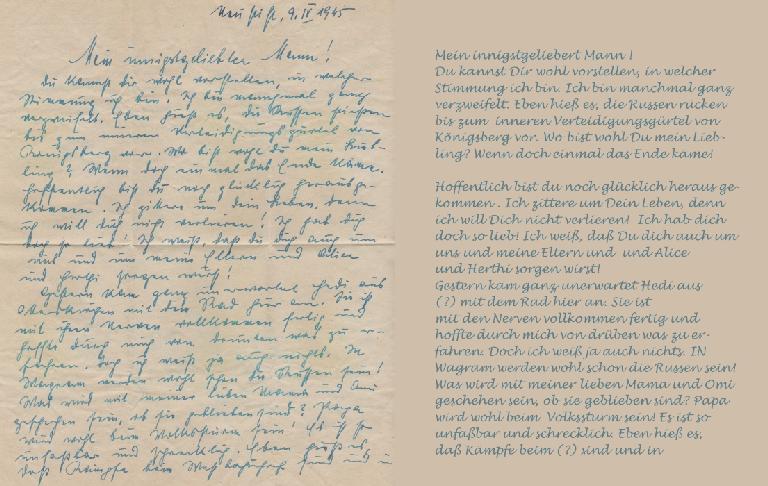 Neustift, 9. IV 1945
Mein innigstgeliebter Mann!
Du kannst dir wohl vorstellen, in welcher
Stimmung ich bin! Ich bin manchmal ganz
verzweifelt. Eben hieß es, die Russen
bis zum inneren Verteidigungsgürtel von
Königsberg vor. Wo bist wohl du mein Lieb-
ling? Wenn doch einmal das Ende käme.
Hoffentlich bist du noch glücklich herausge-
kommen. Ich zittere um dein Leben, denn
ich will dich nicht verlieren! Ich hab dich
doch so lieb! Ich weiß, daß du dich auch um
uns und um meine Eltern und Alice
und Herthi sorgen wirst!
Gestern kam ganz unerwartet Hedi aus
mit dem Rad hier an. Sie ist
mit ihren Nerven vollkommen fertig und
hoffte durch mich von drunten was zu er-
fahren. Doch ich weiß ja auch nichts. In
Wagram werden wohl schon die Russen sein!
Was wird mit meiner lieben Mama und Omi
geschehen sein, ob sie geblieben sind? Papa
wird wohl beim Volkssturm sein! Es ist so
unfaßbar und schrecklich. Eben hieß es,
daß Kämpfe beim Westbahnhof sind und in
Mein innigstgeliebert Mann !
Du kannst Dir wohl vorstellen, in welcher
Stimmung ich bin. Ich bin manchmal ganz
verzweifelt. Eben hieß es, die Russen rucken
bis zum inneren Verteidigungsgürtel von
Königsberg vor. Wo bist wohl Du mein Lieb-
ling? Wenn doch einmal das Ende kame!
Hoffentlich bist du noch glücklich heraus ge-
kommen . Ich zittere um Dein Leben, denn
ich will Dich nicht verlieren! Ich hab dich
doch so lieb! Ich weiß, daß Du dich auch um
uns und meine Eltern und und Alice
und Herthi sorgen wirst!
Gestern kam ganz unerwartet Hedi aus
(?) mit dem Rad hier an. Sie ist
mit den Nerven vollkommen fertig und
hoffte durch mich von drüben was zu er-
fahren. Doch ich weiß ja auch nichts. IN
Wagrum werden wohl schon die Russen sein!
Was wird mit meiner lieben Mama und Omi
geschehen sein, ob sie geblieben sind? Papa
wird wohl beim Volkssturm sein! Es ist so
unfaßbar und schrecklich. Eben hieß es,
daß Kampfe beim (?) sind und in